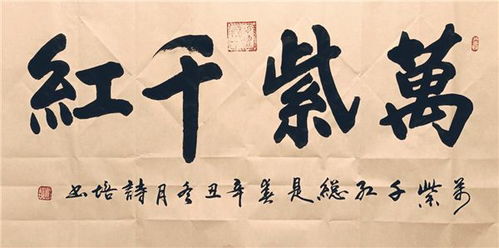 萬紫千紅
萬紫千紅總是春辛丑冬月詩培书